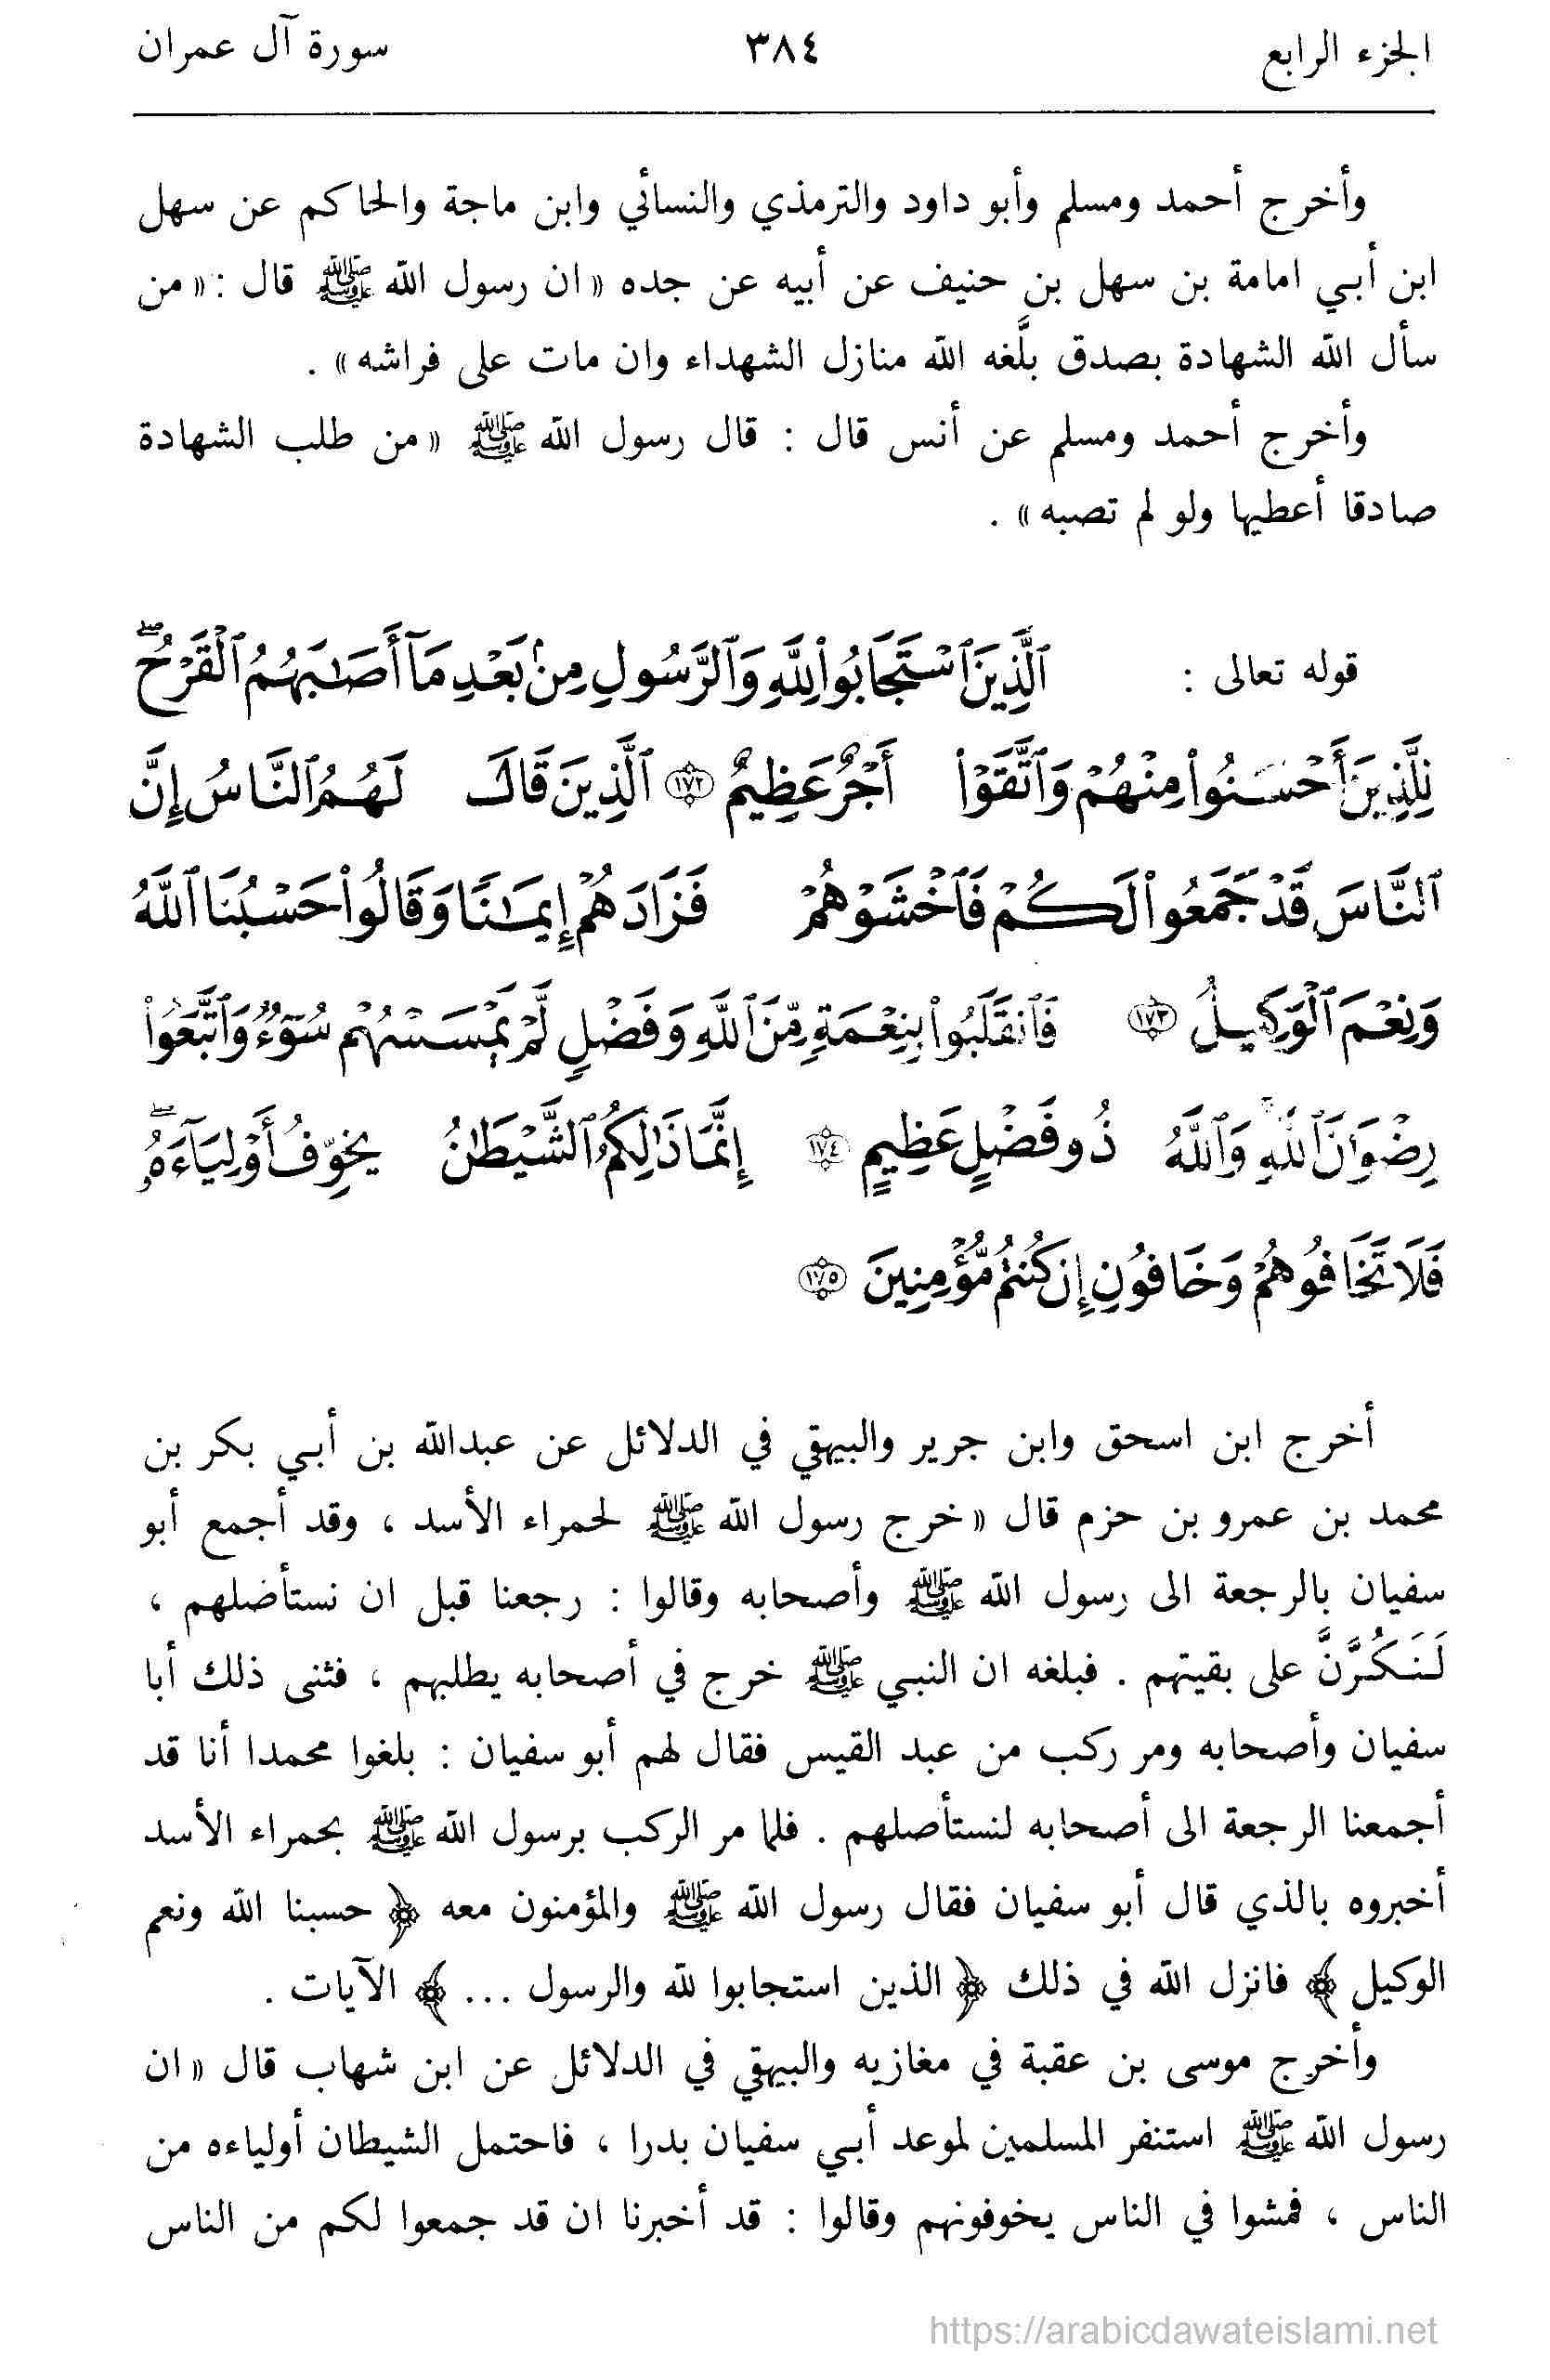 الجزء الرابع ٣٨٤ سورة آل عمران
وأخرج أحمد ومسلم وأبو داود والترمذي والنسائي وابن ماجة والحاكم عن سهل
ابن أبـي امامة بن سهل بن حنيف عن أبيه عن جده «ان رسول الله ﷺ قال : «من
سأل الله الشهادة بصدق بلَّغه الله منازل الشهداء وان مات على فراشه» .
وأخرج أحمد ومسلم عن أنس قال : قال رسول الله ﷺ «من طلب الشهادة
صادقا أعطيها ولو لم تصبه» .
قوله تعالى : ٱلَّذِينَ ٱسْتَجَابُوا۟ لِلَّهِ وَٱلرَّسُولِ مِنۢ بَعْدِ مَآ أَصَـٰبَهُمُ ٱلْقَرْحُ ۚ
لِلَّذِينَ أَحْسَنُوا۟ مِنْهُمْ وَٱتَّقَوْا۟ أَجْرٌ عَظِيمٌ ١٧٢ ٱلَّذِينَ قَالَ لَهُمُ ٱلنَّاسُ إِنَّ
ٱلنَّاسَ قَدْ جَمَعُوا۟ لَكُمْ فَٱخْشَوْهُمْ فَزَادَهُمْ إِيمَـٰنًا وَقَالُوا۟ حَسْبُنَا ٱللَّهُ
وَنِعْمَ ٱلْوَكِيلُ ١٧٣ فَٱنقَلَبُوا۟ بِنِعْمَةٍ مِّنَ ٱللَّهِ وَفَضْلٍ لَّمْ يَمْسَسْهُمْ سُوٓءٌ وَٱتَّبَعُوا۟
رِضْوَٰنَ ٱللَّهِ ۗ وَٱللَّهُ ذُو فَضْلٍ عَظِيمٍ ١٧٤ إِنَّمَا ذَٰلِكُمُ ٱلشَّيْطَـٰنُ يُخَوِّفُ أَوْلِيَآءَهُۥ
فَلَا تَخَافُوهُمْ وَخَافُونِ إِن كُنتُم مُّؤْمِنِينَ ١٧٥
أخرج ابن اسحق وابن جرير والبيهقي في الدلائل عن عبدالله بن أبـي بكر بن
محمد بن عمرو بن حزم قال «خرج رسول الله ﷺ لحمراء الأسد ، وقد أجمع أبو
سفيان بالرجعة الى رسول الله ﷺ وأصحابه وقالوا : رجعنا قبل ان نستأضلهم ،
لَنَكُرَّنَّ على بقيتهم . فبلغه ان النبـي ﷺ خرج في أصحابه يطلبهم ، فثنى ذلك أبا
سفيان وأصحابه ومر ركب من عبد القيس فقال لهم أبو سفيان : بلغوا محمدا أنا قد
أجمعنا الرجعة الى أصحابه لنستأصلهم . فلما مر الركب برسول الله ﷺ بحمراء الأسد
أخبروه بالذي قال أبو سفيان فقال رسول الله ﷺ والمؤمنون معه ﴿ حسبنا الله ونعم
الوكيل ﴾ فانزل الله في ذلك ﴿ الذين استجابوا لله والرسول ... ﴾ الآيات .
وأخرج موسى بن عقبة في مغازيه والبيهقي في الدلائل عن ابن شهاب قال «ان
رسول الله ﷺ استنفر المسلمين لموعد أبـي سفيان بدرا ، فاحتمل الشيطان أولياءه من
الناس ، فمشوا في الناس يخوفونهم وقالوا : قد أخبرنا ان قد جمعوا لكم من الناس
https://arabicdawateislami.net